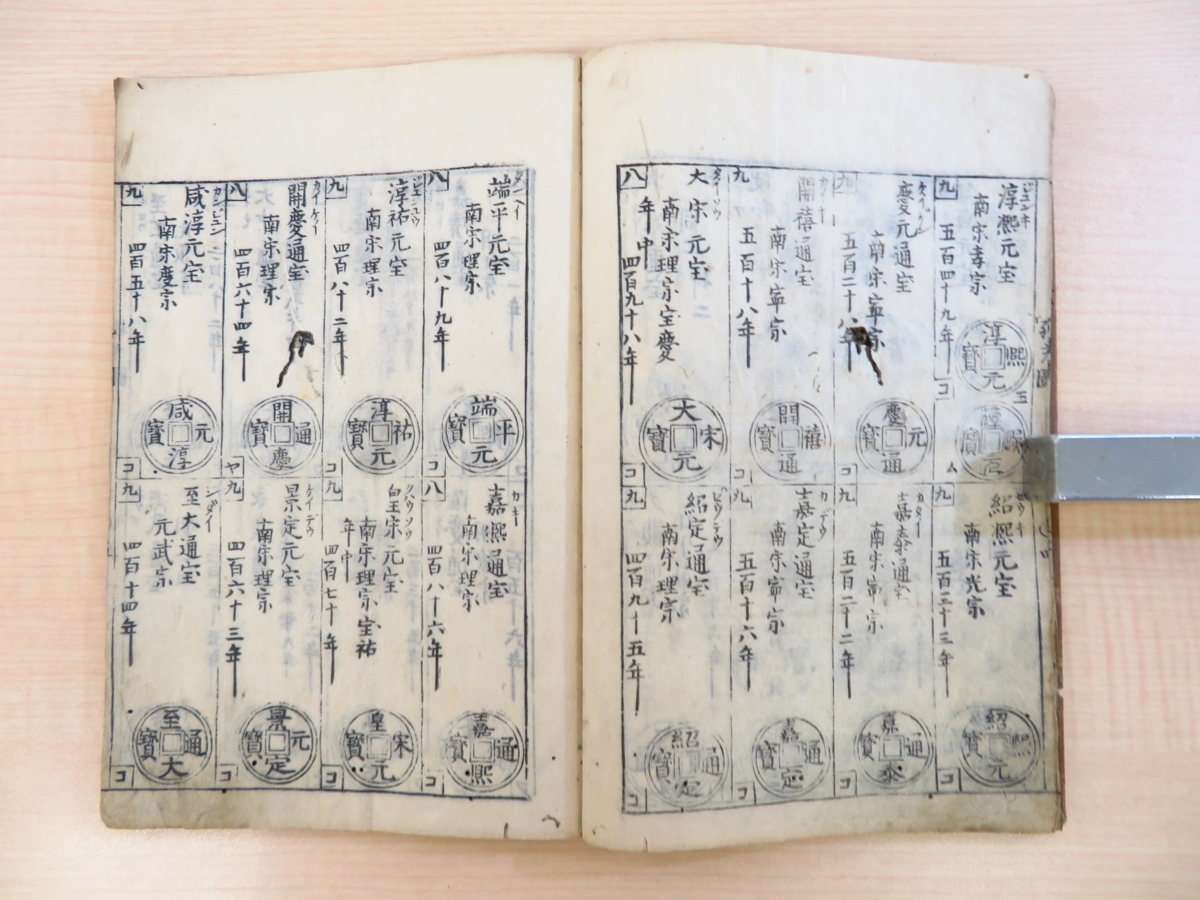 九
ジユンキ
淳熙元宝
南宋孝宗
五百四十九年
淳熙元寶
コ
九
紹熙元宝
南宋光宗
五百三十三年
紹熙元寶
慶元通宝
南宋寧宗
五百二十八年
慶元通寶
コ
九
カタイ
嘉泰通宝
南宋寧宗
五百二十二年
嘉泰通寶
コ
九
開禧通宝
南宋寧宗
五百十八年
開禧通寶
コ
九
カデウ
嘉定通宝
南宋寧宗
五百十六年
嘉定通寶
コ
八
タイソウ
大宋元宝
南宋理宗宝慶
年中
四百九十八年
大宋元寶
コ
九
紹定通宝
南宋理宗
四百九十五年
紹定通寶
コ
八
タンヘイ
端平元宝
南宋理宗
四百八十九年
端平元寶
コ
八
カキ
嘉熙通宝
南宋理宗
四百八十六年
嘉熙通寶
コ
九
淳祐元宝
南宋理宗
四百八十二年
淳祐元寶
コ
九
クハウソウ
皇宋元宝
南宋理宗宝祐
年中
四百七十年
皇宋元寶
コ
八
カイケイ
開慶通宝
南宋理宗
四百六十四年
開慶通寶
ヤ
九
ケイテウ
景定元宝
南宋理宗
四百六十三年
景定元寶
コ
九
カンジユン
咸淳元宝
南宋度宗
四百五十八年
咸淳元寶
コ
九
シダイ
至大通宝
元武宗
四百十四年
至大通寶
コ